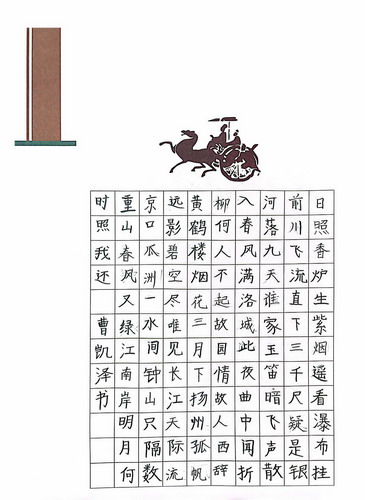 日照香炉生紫烟遥看瀑布挂
前川飞流直下三千尺疑是银
河落九天谁家玉笛暗飞声散
入春风满洛城此夜曲中闻折
柳何人不起故园情故人西辞
黄鹤楼烟花三月下扬州孤帆
远影碧空尽唯见长江天际流
京口瓜洲一水间钟山只隔数
重山春风又绿江南岸明月何
时照我还 曹凯泽书